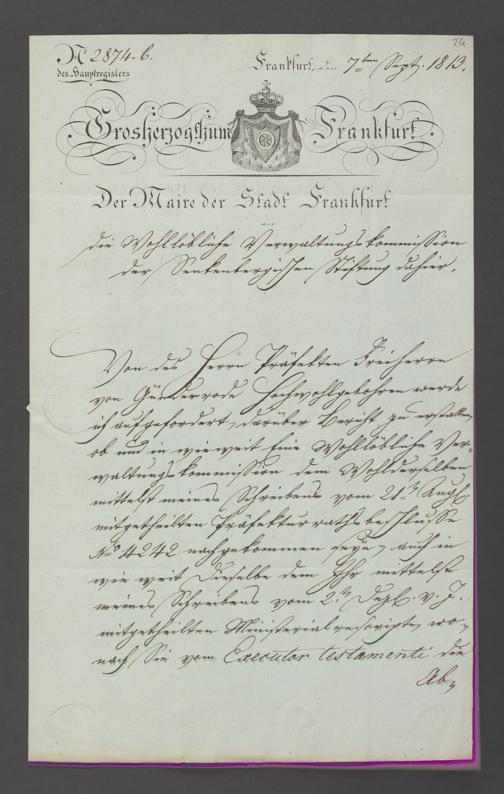 24
No 2874. 6.
des Hauptregisters
Frankfurt, den 7ten Sept. 1813.
Grosherzogthum Frankfurt
Der Maire der Stadt Frankfurt
an
die Wohllöbliche Verwaltungskommission
der Senkenbergischen Stiftung dahier.
Von des Herrn Präfekten Freiherrn
von Günderrode Hochwohlgebohren werde
ich aufgefordert, darüber Bericht zu erstatten,
ob und in wieweit Eine Wohllöbliche Ver-
waltungskommission dem Wohlderselben
mittelst meines Schreibens vom 21ten
mitgetheilten Präfekturrathsbeschlusse
No 4242 nachgekommen seye, auch in
wie weit Dieselbe dem Ihr mittelst
meines Schreibens vom 2ten v. J.
mitgetheilten Ministerialrescripte, wo-
nach Sie vom Executor testamenti die
Ab-